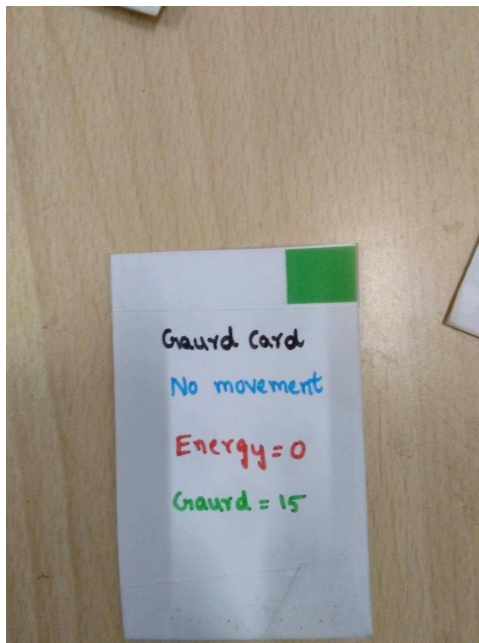 Gaurd Card
No movement
Energy = 0
Gaurd = 15